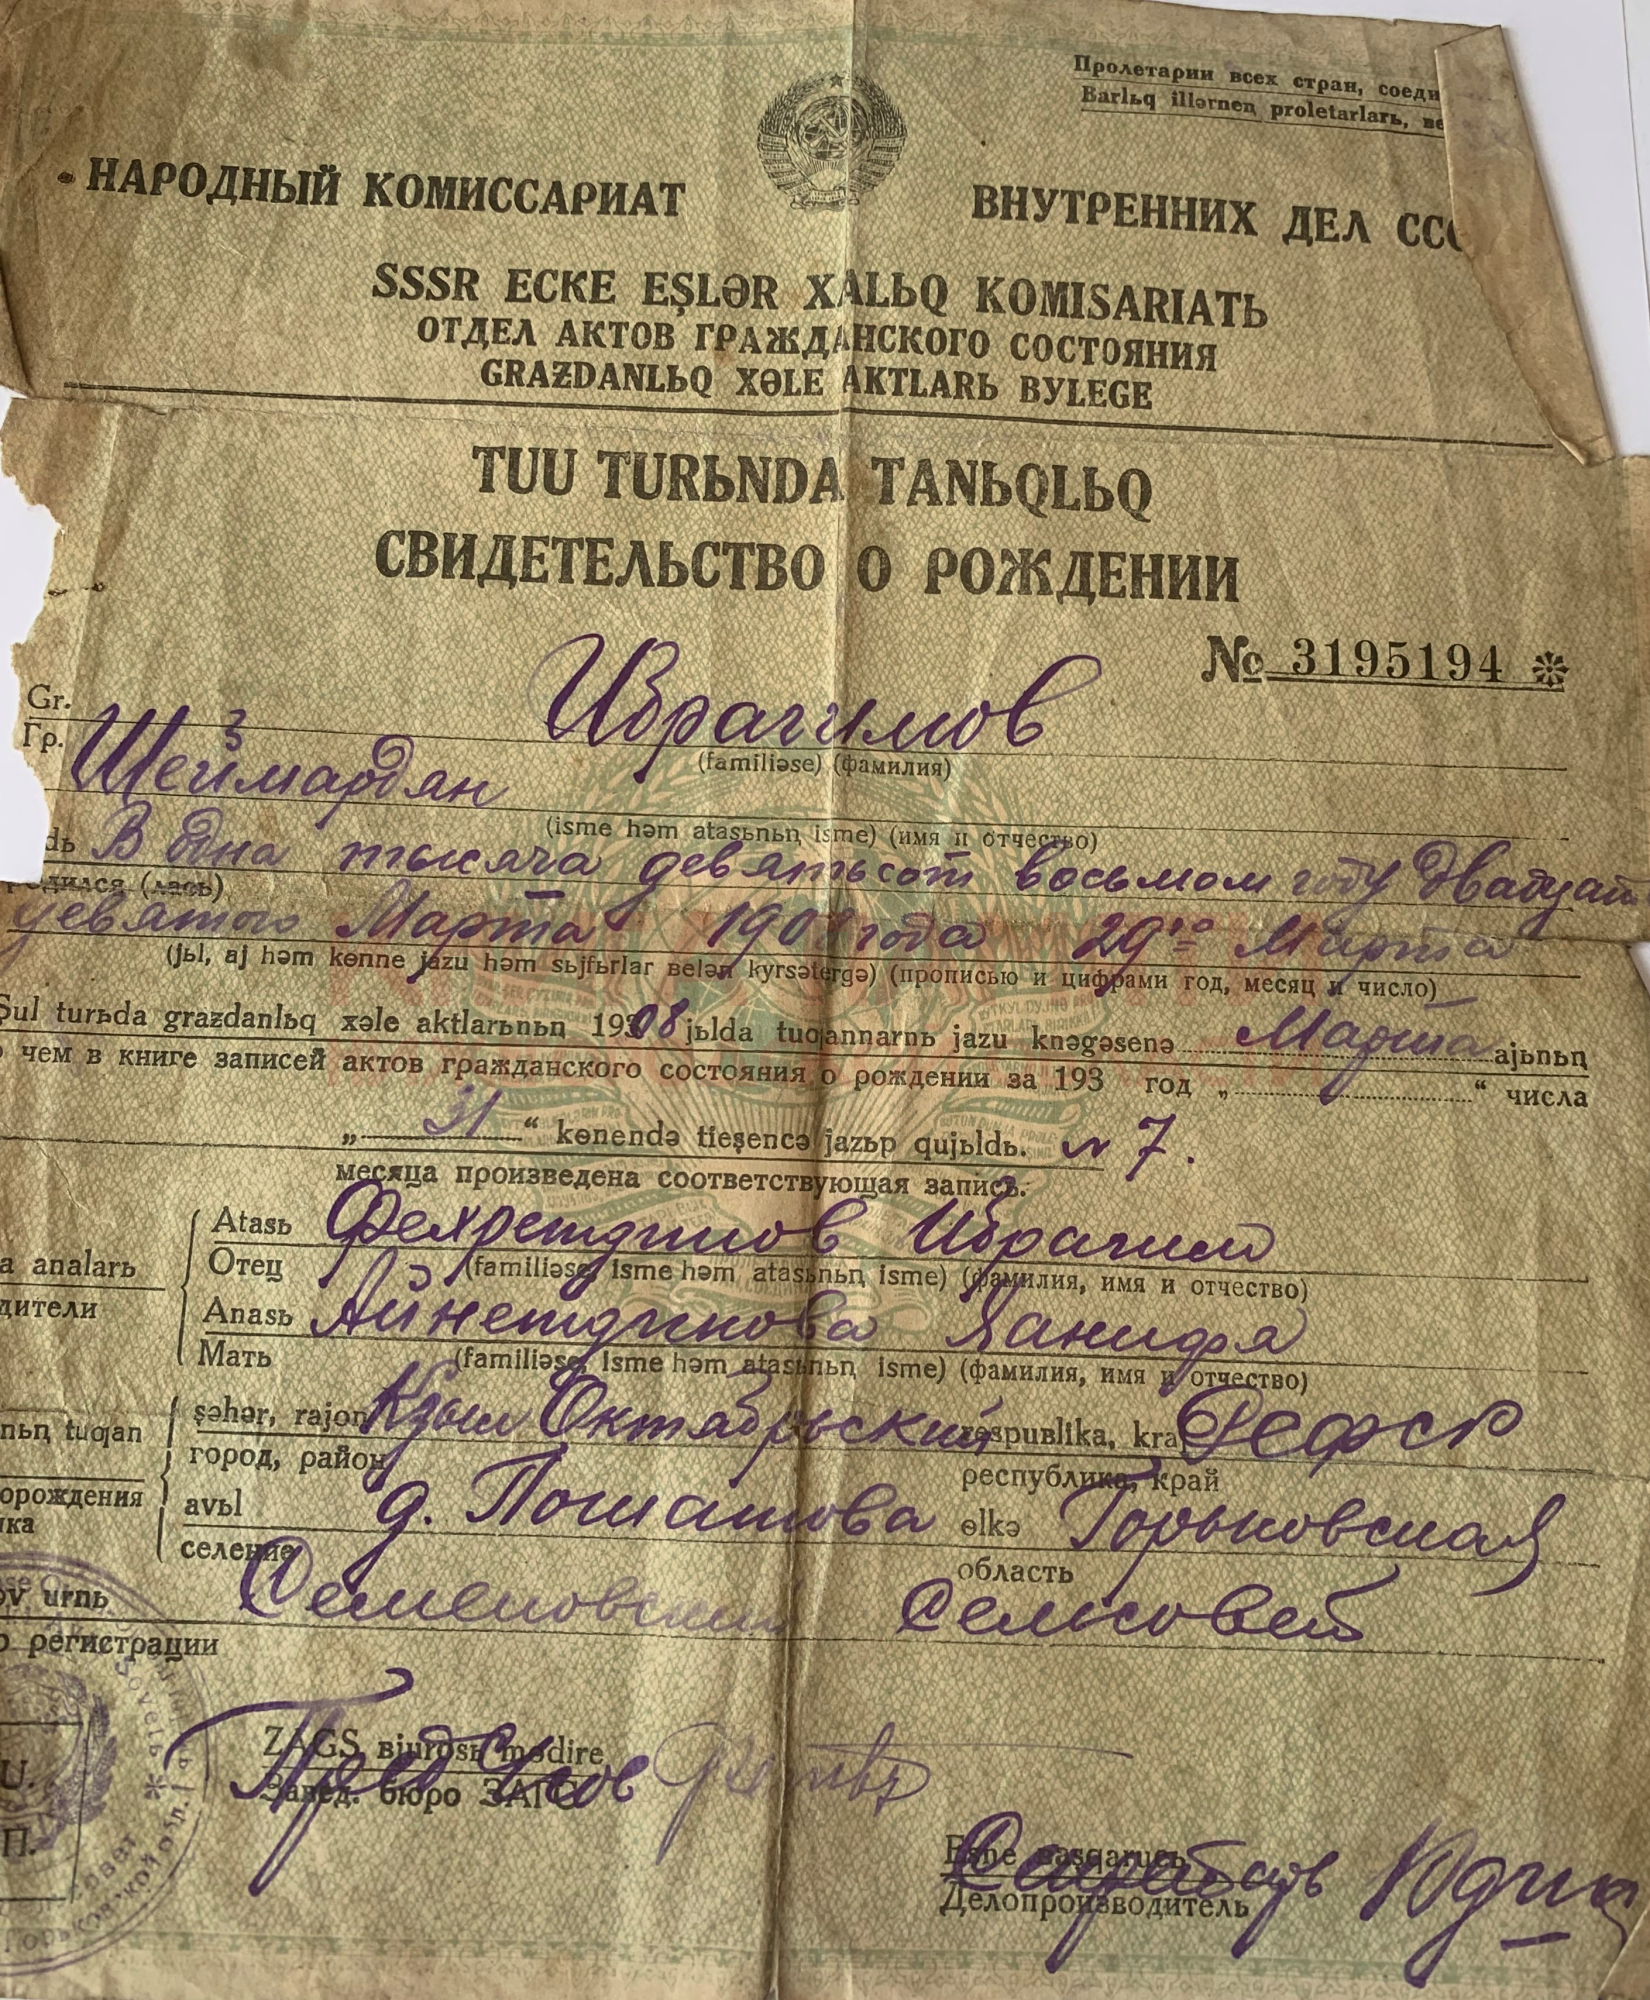 Пролетарии всех стран, соеди
Barlьq illərneꞑ proletarlarь, ве
НАРОДНЫЙ КОМИССАРИАТ ВНУТРЕННИХ ДЕЛ ССС
SSSR ECKE EŞLƏR XALЬQ KOMISARIATЬ
ОТДЕЛ АКТОВ ГРАЖДАНСКОГО СОСТОЯНИЯ
GRAƵDANLЬQ XƏLE AKTLARЬ BYLEGE
TUU TURЬNDA TANЬQLЬQ
СВИДЕТЕЛЬСТВО О РОЖДЕНИИ
№ 3195194
Gr. Ибрагимов
Гр. (familiəse) (фамилия)
Шеймардян
(isme həm atasьnьꞑ isme) (имя и отчество)
dь В одна тысяча девятьсот восьмом году двадцать
родился (лась)
девятого Марта 1908 года 29го Марта
(jьl, aj həm kɵnne jazu həm sьjfьrlar ʙelən kyrsətergə) (прописью и цифрами год, месяц и число)
Şul turьda graƶdanlьq xəle aktlarьnьꞑ 1908 jьlda tuƣannarnь jazu knəgəsenə Марта ajьnьꞑ
о чем в книге записей актов гражданского состояния о рождении за 193 год „ “ числа
„ 31 “ kɵnendə tieşencə jazьp qujьldь. N 7.
месяца произведена соответствующая запись.
a analarь
дители
Atasь Фехретдинов Ибрагим
Отец (familiəse, isme həm atasьnьꞑ isme) (фамилия, имя и отчество)
Anasь Айнетдинова Ханифя
Мать (familiəse, isme həm atasьnьꞑ isme) (фамилия, имя и отчество)
nьꞑ tuƣan
орождения
ка
şəhər, rajon Кзыл Октябрьский respublika, kraj РСФСР
город, район республика, край
avьl д. Пошатова ɵlkə Горьковская
селение область
ov urnь Семеновский Сельсовет
о регистрации
ZAGS ʙjurosь mɵdire
Завед. бюро ЗАГС
Пред с/сов
U.
П.
Eşne ʙasqarucь
Делопроизводитель
Секретарь